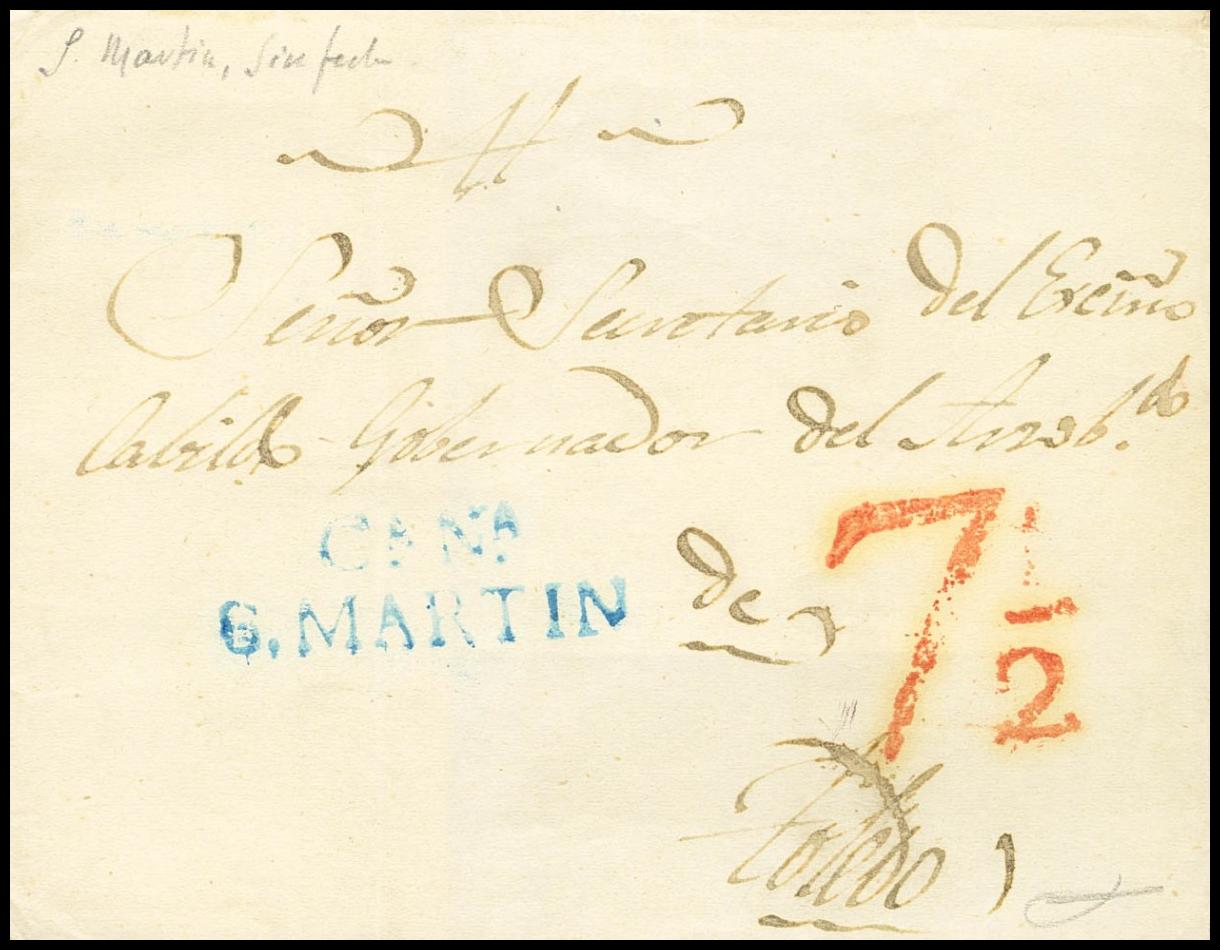 S. Martin, sin fecha
Señor Secretario del Excmõ
Cabildo Gobernador del Arzob.do
CANA
S. MARTIN
de
7 1/2
Toledo